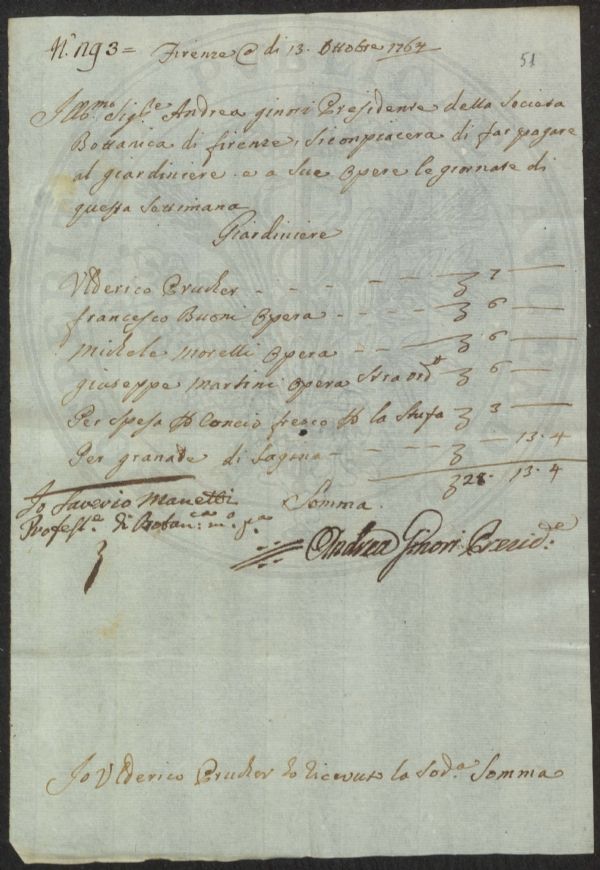 N.° 193 = Firenze @ di 13. Ottobre 1764
51
Ill:mo Sig:re Andrea ginori Presidente della Societa
Bottanica di firenze, si compiacera di far pagare
al giardiniere e a Sue Opere le giornate di
questa Settimana
Giardiniere
Ulderico Prucker - - - - - - 7 —
francesco Buoni Opera - - - - 6 —
Michele Moretti Opera - - - 6 —
giuseppe Martini Opera Straord:a 6 —
Per spesa di Concio fresco la Stufa 3 —
Per granate di Sagina - - - - 13.4
28. 13.4
Somma
Io Saverio Manetti
Profess:e di Botan:ca m:o p:a
Andrea Ginori Presid:e
Io Ulderico Prucker ho ricevuto la Sod:a Somma